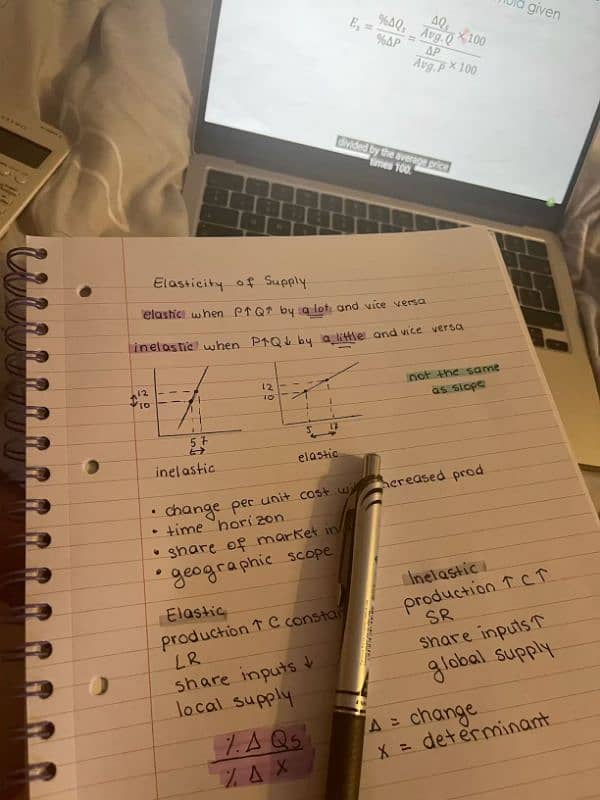 given
Es = %ΔQs / %ΔP = ΔQs / Avg. Q × 100 / ΔP / Avg. P × 100
divided by the average price
times 100.
Elasticity of Supply
elastic when P↑Q↑ by a lot and vice versa
inelastic when P↑Q↓ by a little and vice versa
12
10
5 7
inelastic
12
10
5 17
elastic
not the same
as slope
• change per unit cost increased prod
• time horizon
• share of market
• geographic scope
Elastic
production ↑ C
LR
share inputs ↓
local supply
Inelastic
production ↑ C↑
SR
share inputs↑
global supply
%Δ Qs
%Δ X
Δ = change
X = determinant